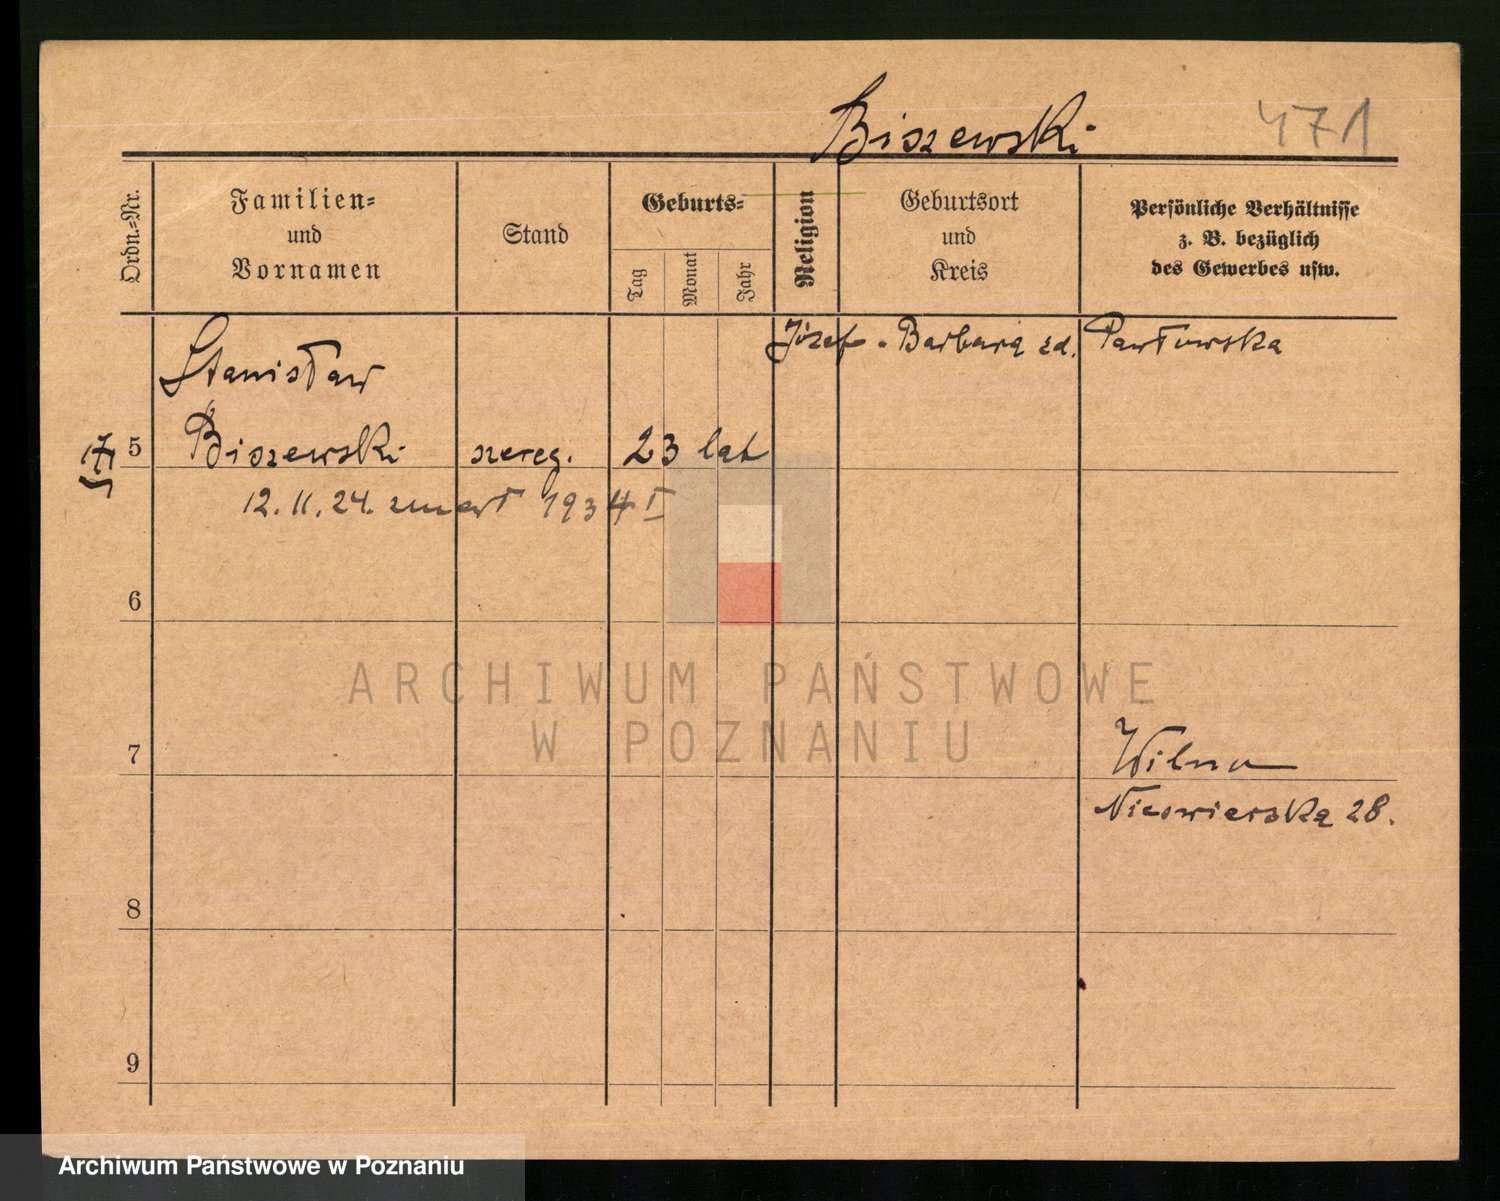 Biszewski
471
Ordn.-Nr.
Familien-
und
Vornamen
Stand
Geburts-
Tag
Monat
Jahr
Religion
Geburtsort
und
Kreis
Persönliche Verhältnisse
z. B. bezüglich
des Gewerbes usw.
Józef - Barbara zd. Pawłowska
Stanisław
5 Biszewski szereg. 23 lat
12.11.24. zmarł 1934 I
6
ARCHIWUM PAŃSTWOWE
W POZNANIU
7
Wilno
28.
8
9
Archiwum Państwowe w Poznaniu